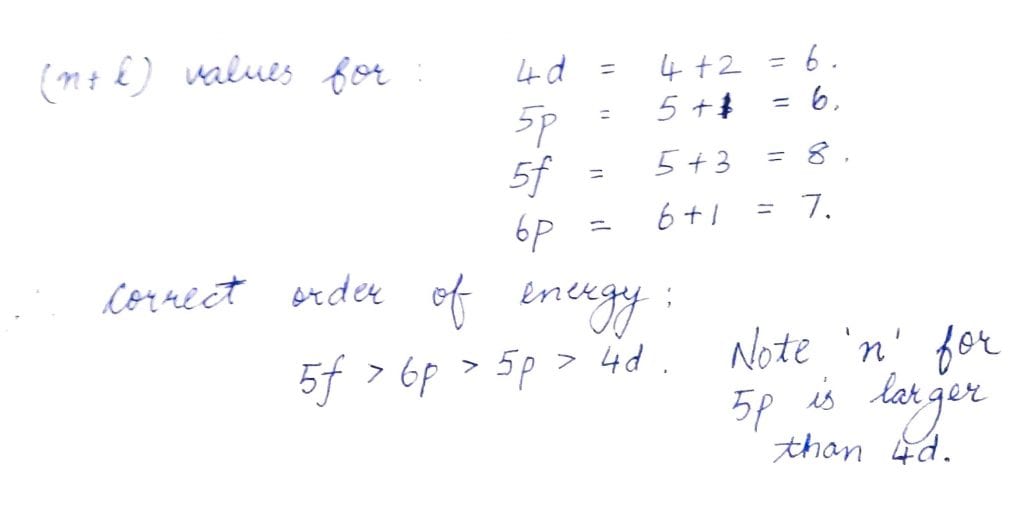 (n+l) values for : 4d = 4+2 = 6.
5p = 5+1 = 6.
5f = 5+3 = 8.
6p = 6+1 = 7.
∴ correct order of energy ;
5f > 6p > 5p > 4d . Note 'n' for
5p is larger
than 4d.